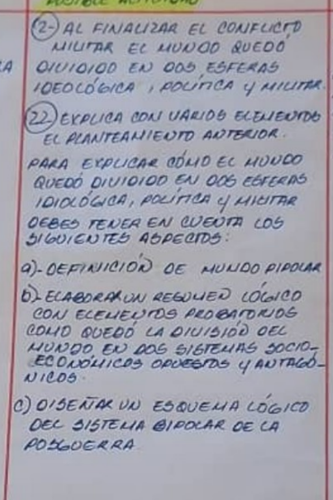 POSIBLE ACTIVIDAD
2- AL FINALIZAR EL CONFLICTO
MILITAR EL MUNDO QUEDÓ
LA DIVIDIDO EN DOS ESFERAS
IDEOLÓGICA, POLÍTICA Y MILITAR.
22- EXPLICA CON VARIOS ELEMENTOS
EL PLANTEAMIENTO ANTERIOR.
PARA EXPLICAR CÓMO EL MUNDO
QUEDÓ DIVIDIDO EN DOS ESFERAS
IDIOLÓGICA, POLÍTICA Y MILITAR
DEBES TENER EN CUENTA LOS
SIGUIENTES ASPECTOS:
a)- DEFINICIÓN DE MUNDO PIPOLAR
b)- ELABORAR UN RESUMEN LÓGICO
CON ELEMENTOS PROBATORIOS
COMO QUEDÓ LA DIVISIÓN DEL
MUNDO EN DOS SISTEMAS SOCIO-
ECONÓMICOS OPUESTOS Y ANTAGÓ-
NICOS.
c) DISEÑAR UN ESQUEMA LÓGICO
DEL SISTEMA BIPOLAR DE LA
POSGUERRA